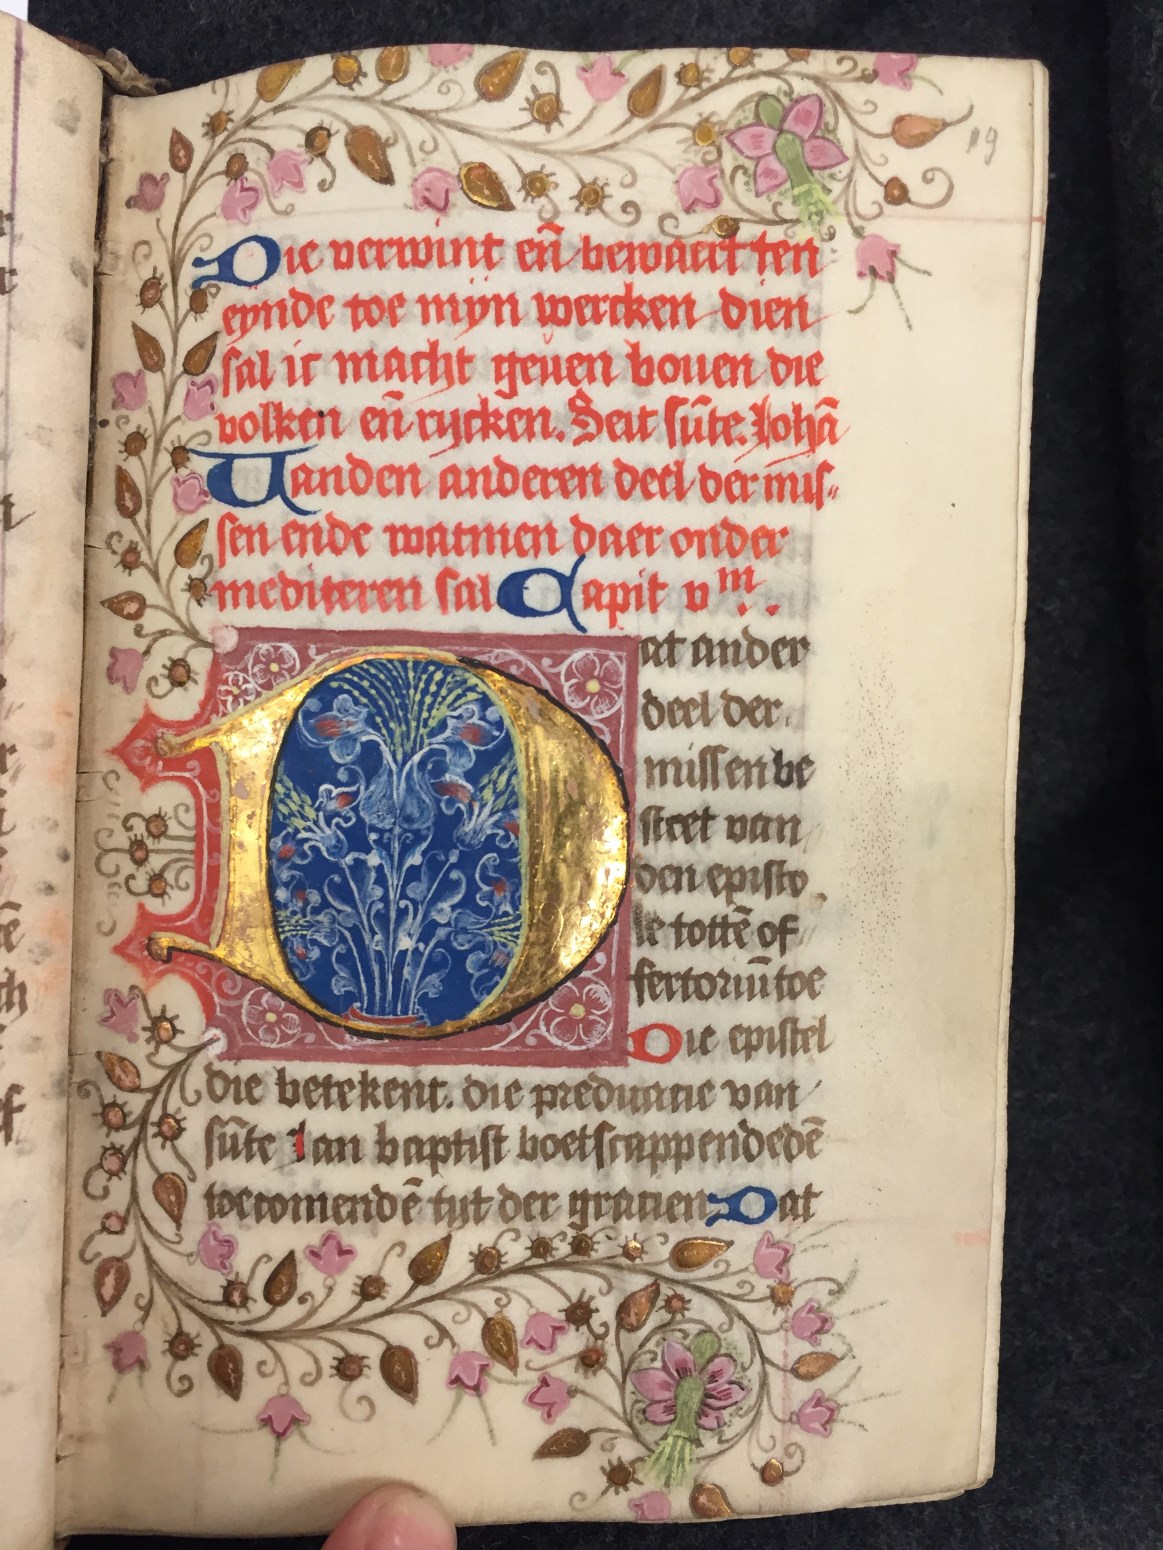 19
Die verwint en̄ bewaert ten
eynde toe mijn wercken dien
sal ic macht geuen bouen die
volken en̄ rijcken. Seit sūte Iohā
Uanden anderen deel der mis-
sen ende watmen daer onder
mediteren sal Capit vᵐ.
Dat ander
deel der
missen be
steet van
den episto
le tottē of
fertoriū toe
Die epistel
die betekent die predicacie van
sūte Ian baptist boetscappende dē
toecomendē tijt der gracien Dat